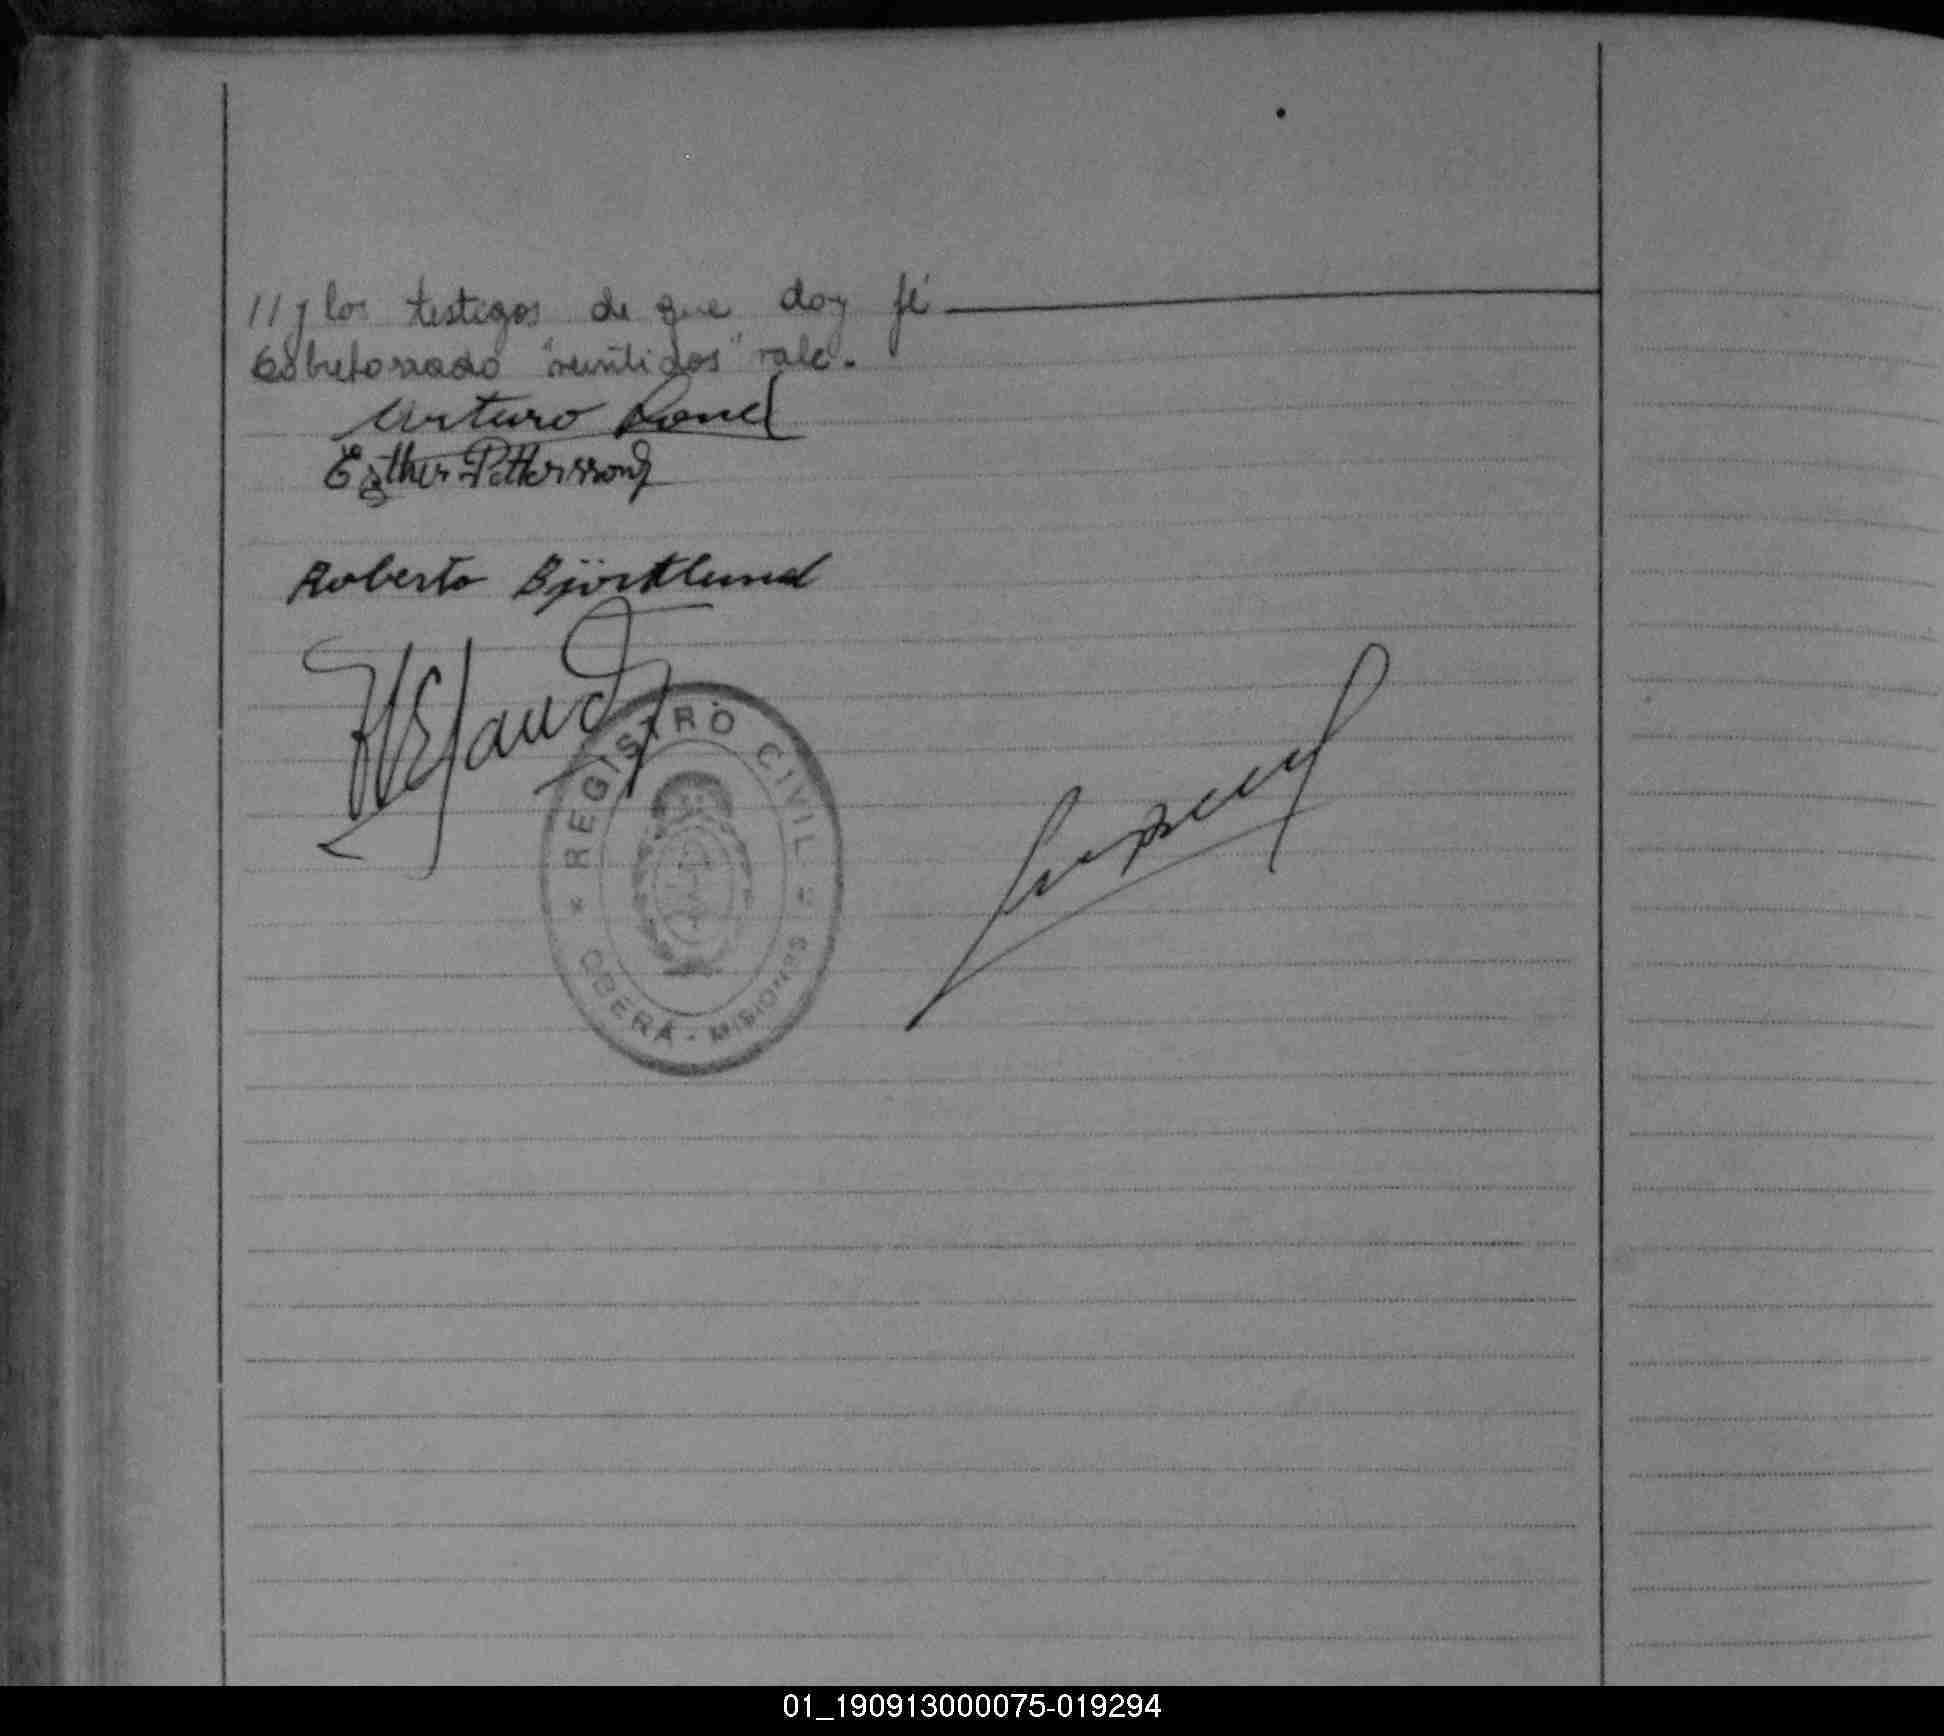 // y los testigos de que doy fé
Sobreforrado "veintidos" vale.
Arturo
Esther Pettersson
Roberto Björklund
REGISTRO CIVIL
OBERA - MISIONES
01_190913000075-019294